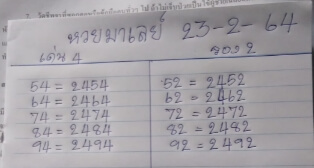 หวยมาเลย์ 23-2-64
เด่น 4 รอง 2
54 = 2454 52 = 2452
64 = 2464 62 = 2462
74 = 2474 72 = 2472
84 = 2484 82 = 2482
94 = 2494 92 = 2492